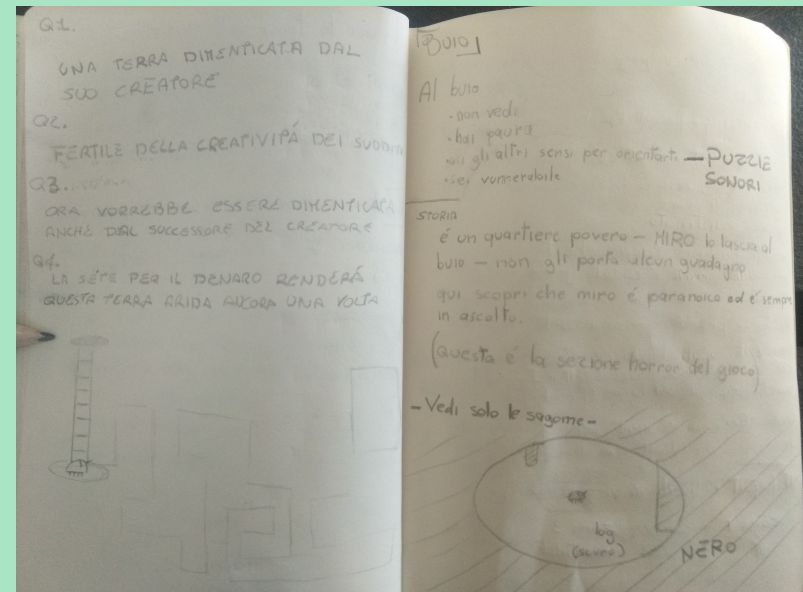 Q1.
UNA TERRA DIMENTICATA DAL
SUO CREATORE
Q2.
FERTILE DELLA CREATIVITÁ DEI SUDDITI
Q3.
ORA VORREBBE ESSERE DIMENTICATA
ANCHE DAL SUCCESSORE DEL CREATORE
Q4.
LA SETE PER IL DENARO RENDERÁ
QUESTA TERRA ARIDA ANCORA UNA VOLTA
BUIO
Al buio
• non vedi
• hai paura
gli altri sensi per orientarti — PUZZLE
SONORI
• sei vulnerabile
STORIA
é un quartiere povero – MIRO lo lascia al
buio – non gli porta alcun guadagno
qui scopri che miro é paranoico ed é sempre
in ascolto.
(Questa é la sezione horror del gioco)
- Vedi solo le sagome -
log
NERO